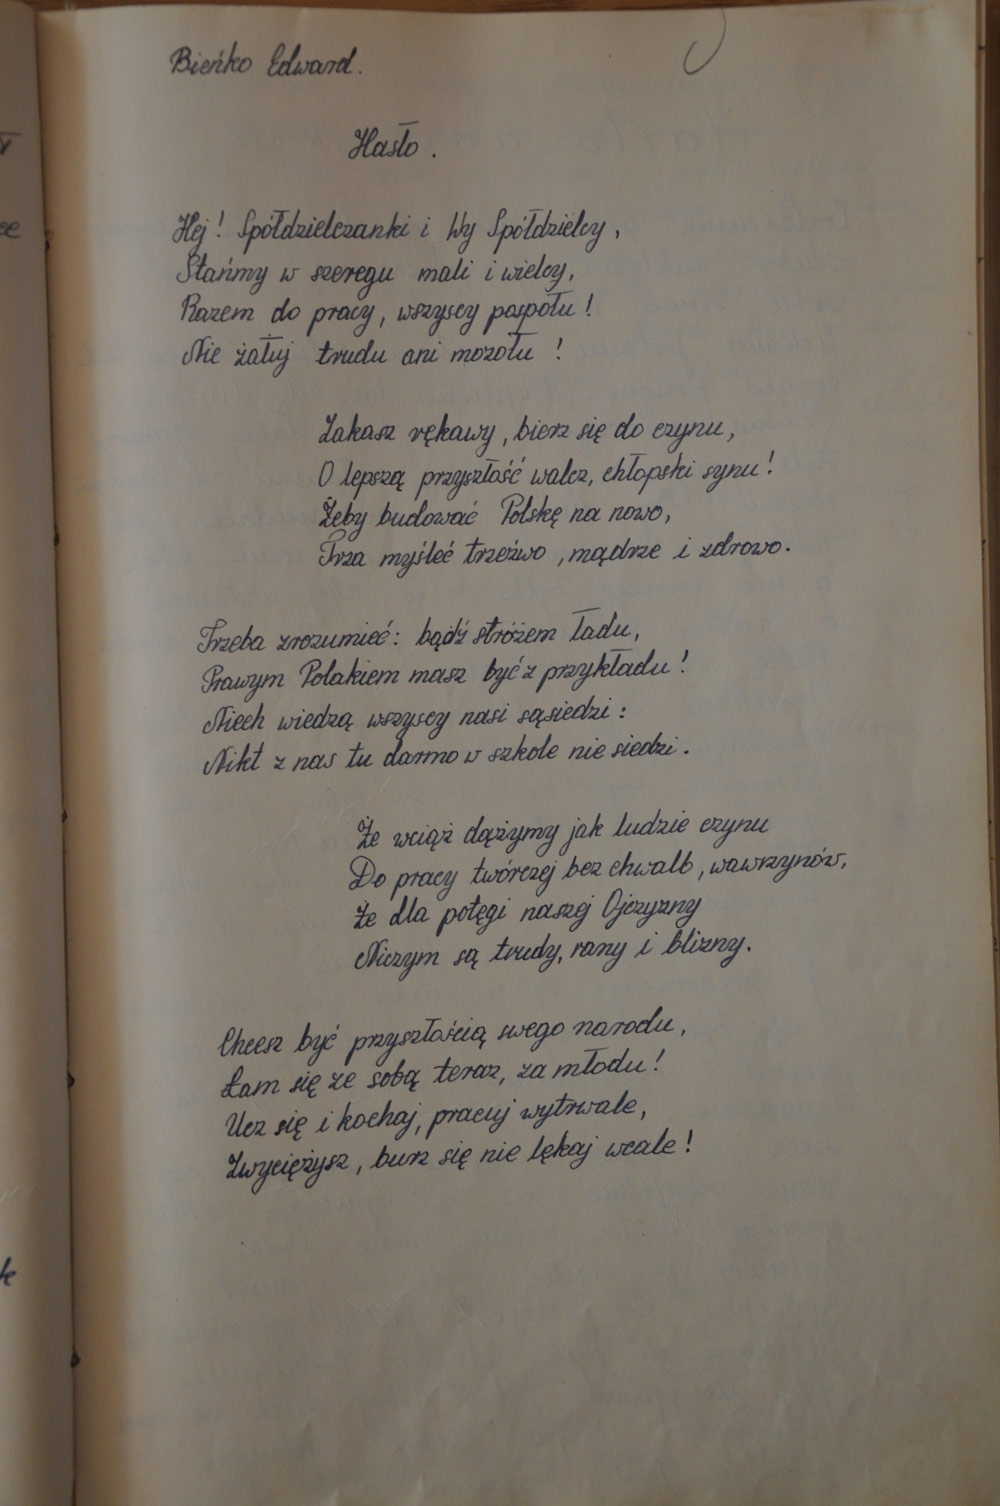 Bieńko Edward.
Hasło.
Hej! Spółdzielczanki i Wy Spółdzielcy,
Stańmy w szeregu mali i wielcy,
Razem do pracy, wszyscy pospołu!
Nie żałuj trudu ani mozołu!
Zakasz rękawy, bierz się do czynu,
O lepszą przyszłość walcz, chłopski synu!
Żeby budować Polskę na nowo,
Trza myśleć trzeźwo, mądrze i zdrowo.
Trzeba zrozumieć: bądź stróżem ładu,
Prawym Polakiem masz być z przykładu!
Niech wiedzą wszyscy nasi sąsiedzi:
Nikt z nas tu darmo w szkole nie siedzi.
Że wciąż dążymy jak ludzie czynu
Do pracy twórczej bez chwalb, wawrzynów,
Że dla potęgi naszej Ojczyzny
Niczym są trudy, rany i blizny.
Chcesz być przyszłością swego narodu,
Łam się ze sobą teraz, za młodu!
Ucz się i kochaj, pracuj wytrwale,
Zwyciężysz, burz się nie lękaj wcale!